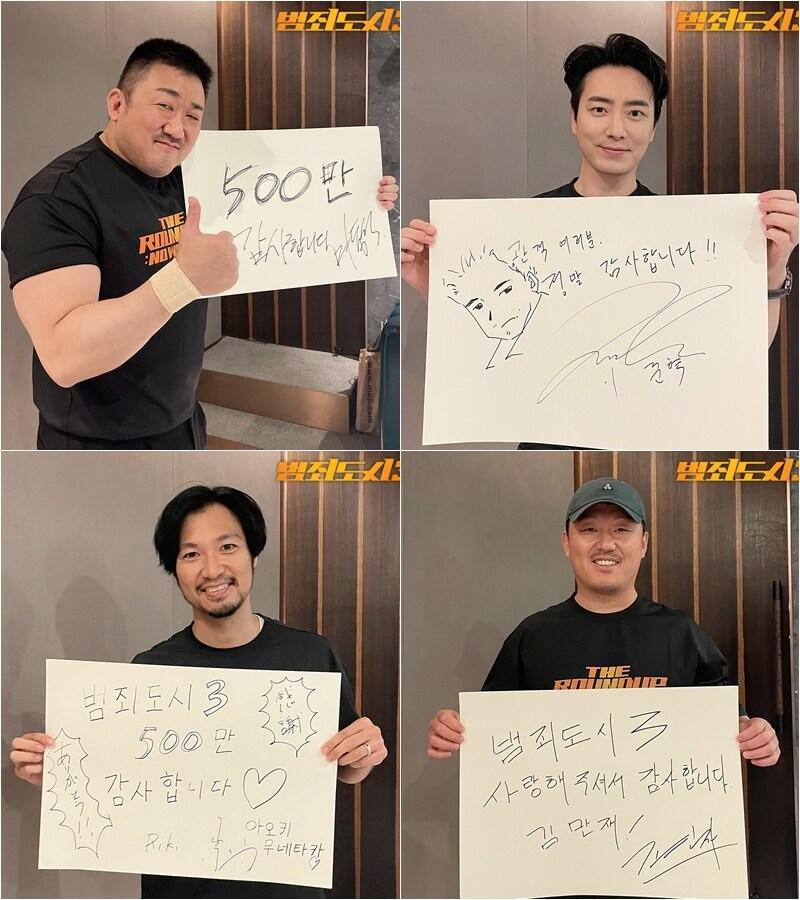 범죄도시3
500만
감사합니다
THE
ROUNDUP
:NOW
www.muji.com
범죄도시3
관객 여러분.
정말 감사합니다!!
준혁
범죄도시3
범죄도시3
500만
감사합니다♡
感謝
ありがとう!!
Riki
아오키
무네타카♡
범죄도시3
THE
ROUNDUP
범죄도시3
사랑해주셔서 감사합니다.
김만재!